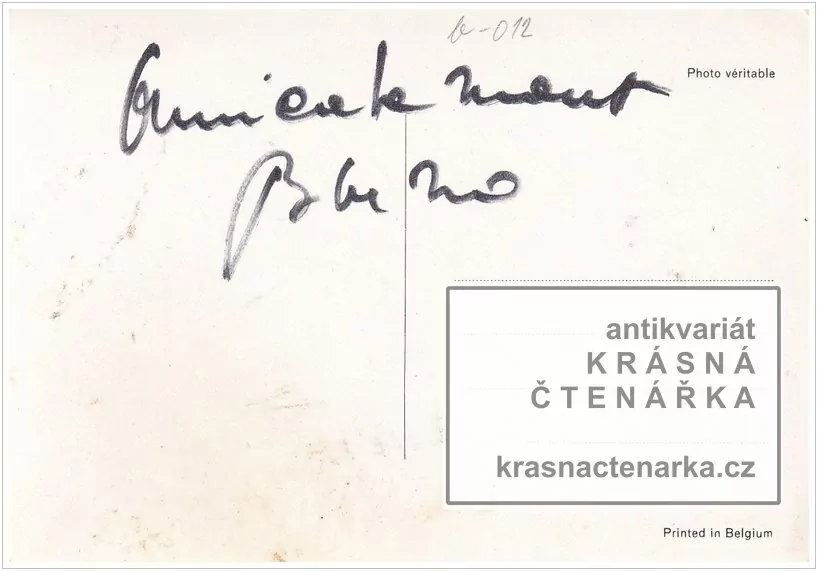 b-012
Photo véritable
Amicalement
antikvariát
KRÁSNÁ
ČTENÁŘKA
krasnactenarka.cz
Printed in Belgium